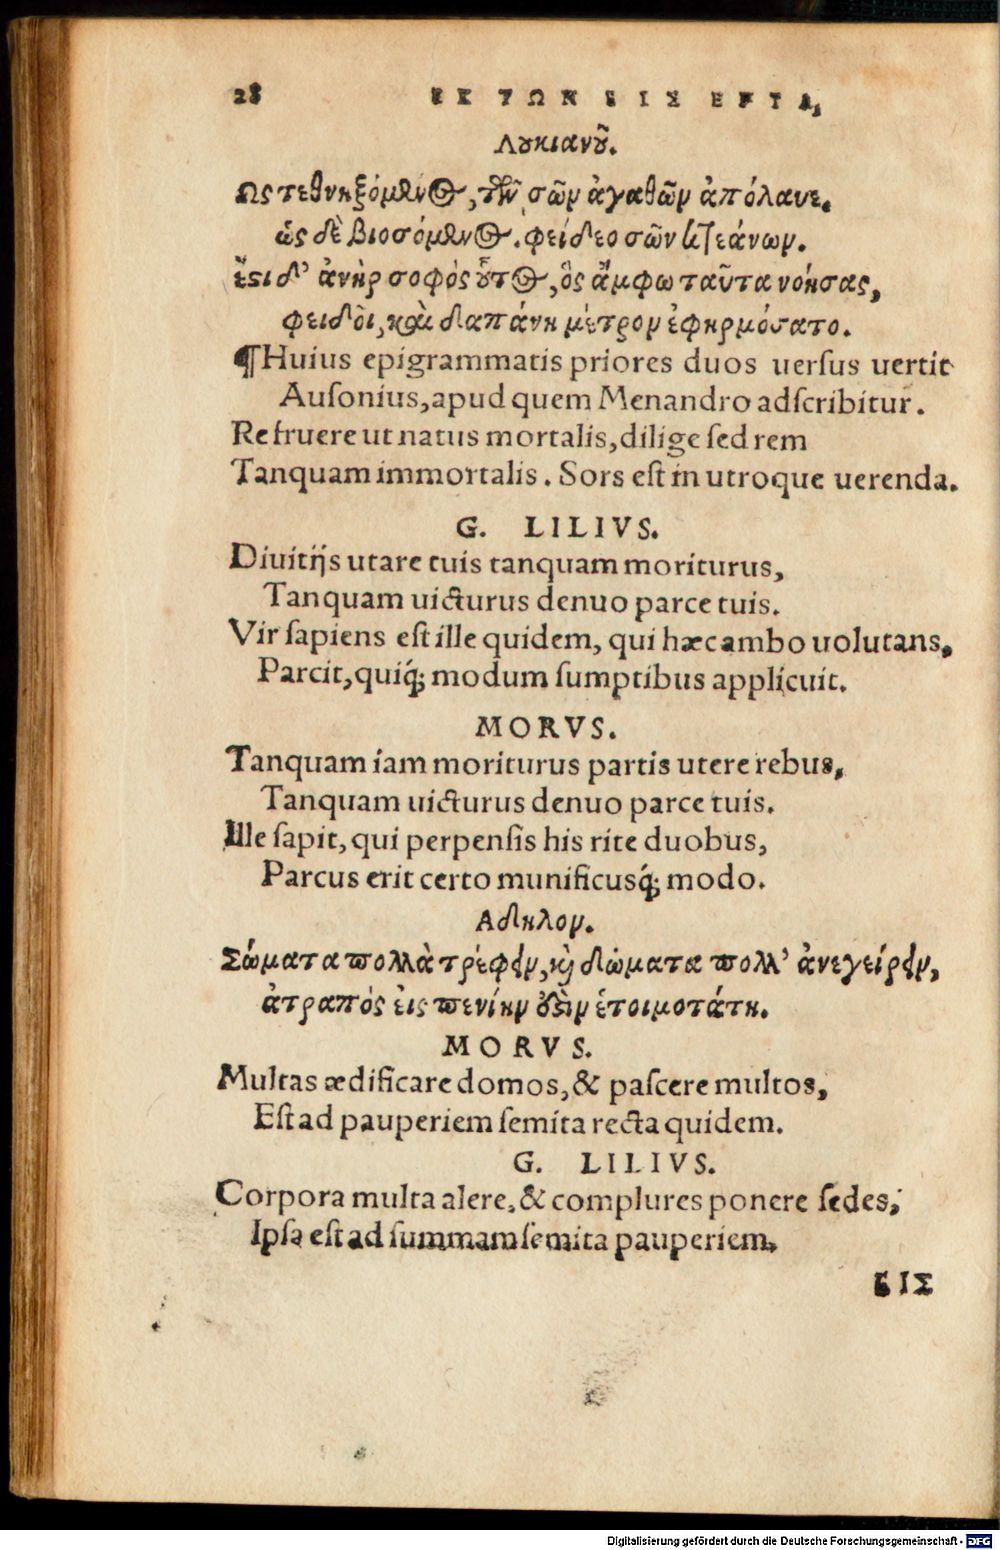 28 ΕΚ ΤΩΝ ΕΙΣ ΕΡΤΑ,
Λουκιανοῦ.
Ως τεθνηξόμενος, τῶν σῶν ἀγαθῶν ἀπόλαυε.
ὡς δὲ βιοσόμενος. φείδεο σῶν κτεάνων.
ἔστι δ' ἀνὴρ σοφὸς οὗτος, ὃς ἄμφω ταῦτα νοήσας,
φειδοῖ, καὶ δαπάνη μέτρον ἐφηρμόσατο.
¶Huius epigrammatis priores duos uerſus uertit
Auſonius, apud quem Menandro adſcribitur.
Re fruere ut natus mortalis, dilige ſed rem
Tanquam immortalis. Sors eſt in utroque uerenda.
G. LILIVS.
Diuitijs utare tuis tanquam moriturus,
Tanquam uicturus denuo parce tuis.
Vir ſapiens eſt ille quidem, qui hæc ambo uolutans,
Parcit, quiq́; modum ſumptibus applicuit.
MORVS.
Tanquam iam moriturus partis utere rebus,
Tanquam uicturus denuo parce tuis.
Ille ſapit, qui perpenſis his rite duobus,
Parcus erit certo munificusq́; modo.
Αδηλον.
Σώματα πολλὰ τρέφειν, καὶ δώματα πολλ' ἀνεγείρειν,
ἀτραπὸς εἰς πενίην οὐδὲν ἑτοιμοτάτη.
MORVS.
Multas ædificare domos, & paſcere multos,
Eſt ad pauperiem ſemita recta quidem.
G. LILIVS.
Corpora multa alere, & complures ponere ſedes,
Ipſa eſt ad ſummam ſemita pauperiem.
ΕΙΣ
Digitalisierung gefördert durch die Deutsche Forschungsgemeinschaft - DFG